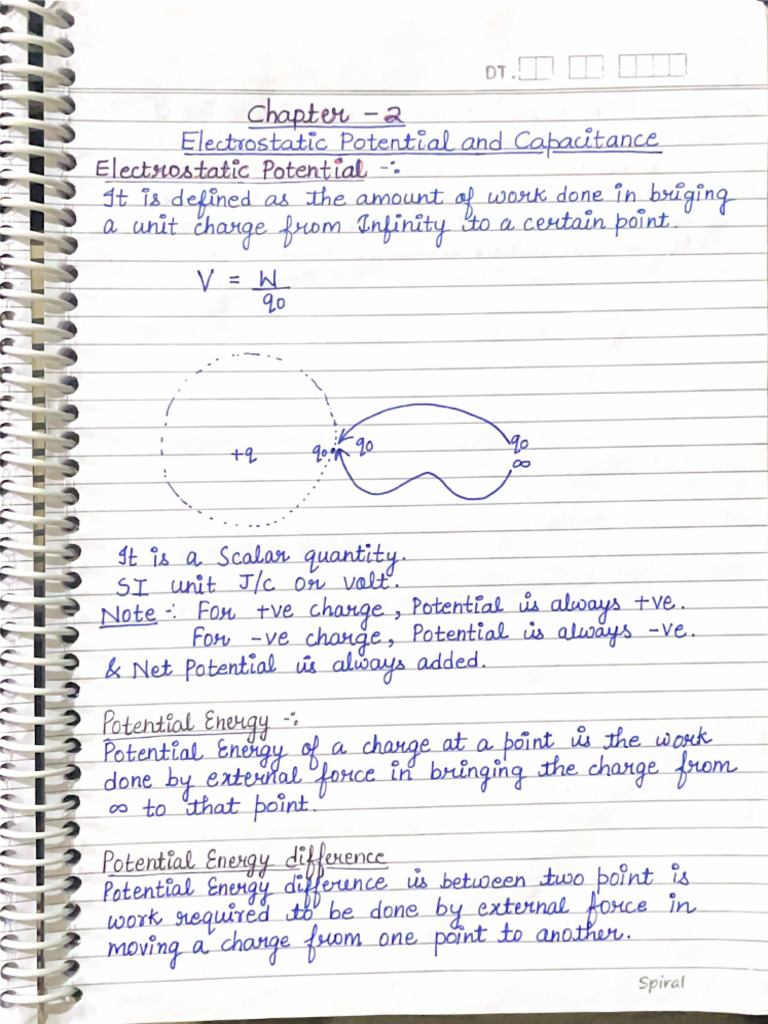 DT.
Chapter - 2
Electrostatic Potential and Capacitance
Electrostatic Potential -:
It is defined as the amount of work done in briging
a unit charge from Infinity to a certain point.
V = W
q0
+q q0 q0 q0
∞
It is a Scalar quantity.
SI unit J/c or volt.
Note -: For +ve charge, Potential is always +ve.
For -ve charge, Potential is always -ve.
& Net Potential is always added.
Potential Energy -:
Potential Energy of a charge at a point is the work
done by external force in bringing the charge from
∞ to that point.
Potential Energy difference
Potential Energy difference is between two point is
work required to be done by external force in
moving a charge from one point to another.
Spiral